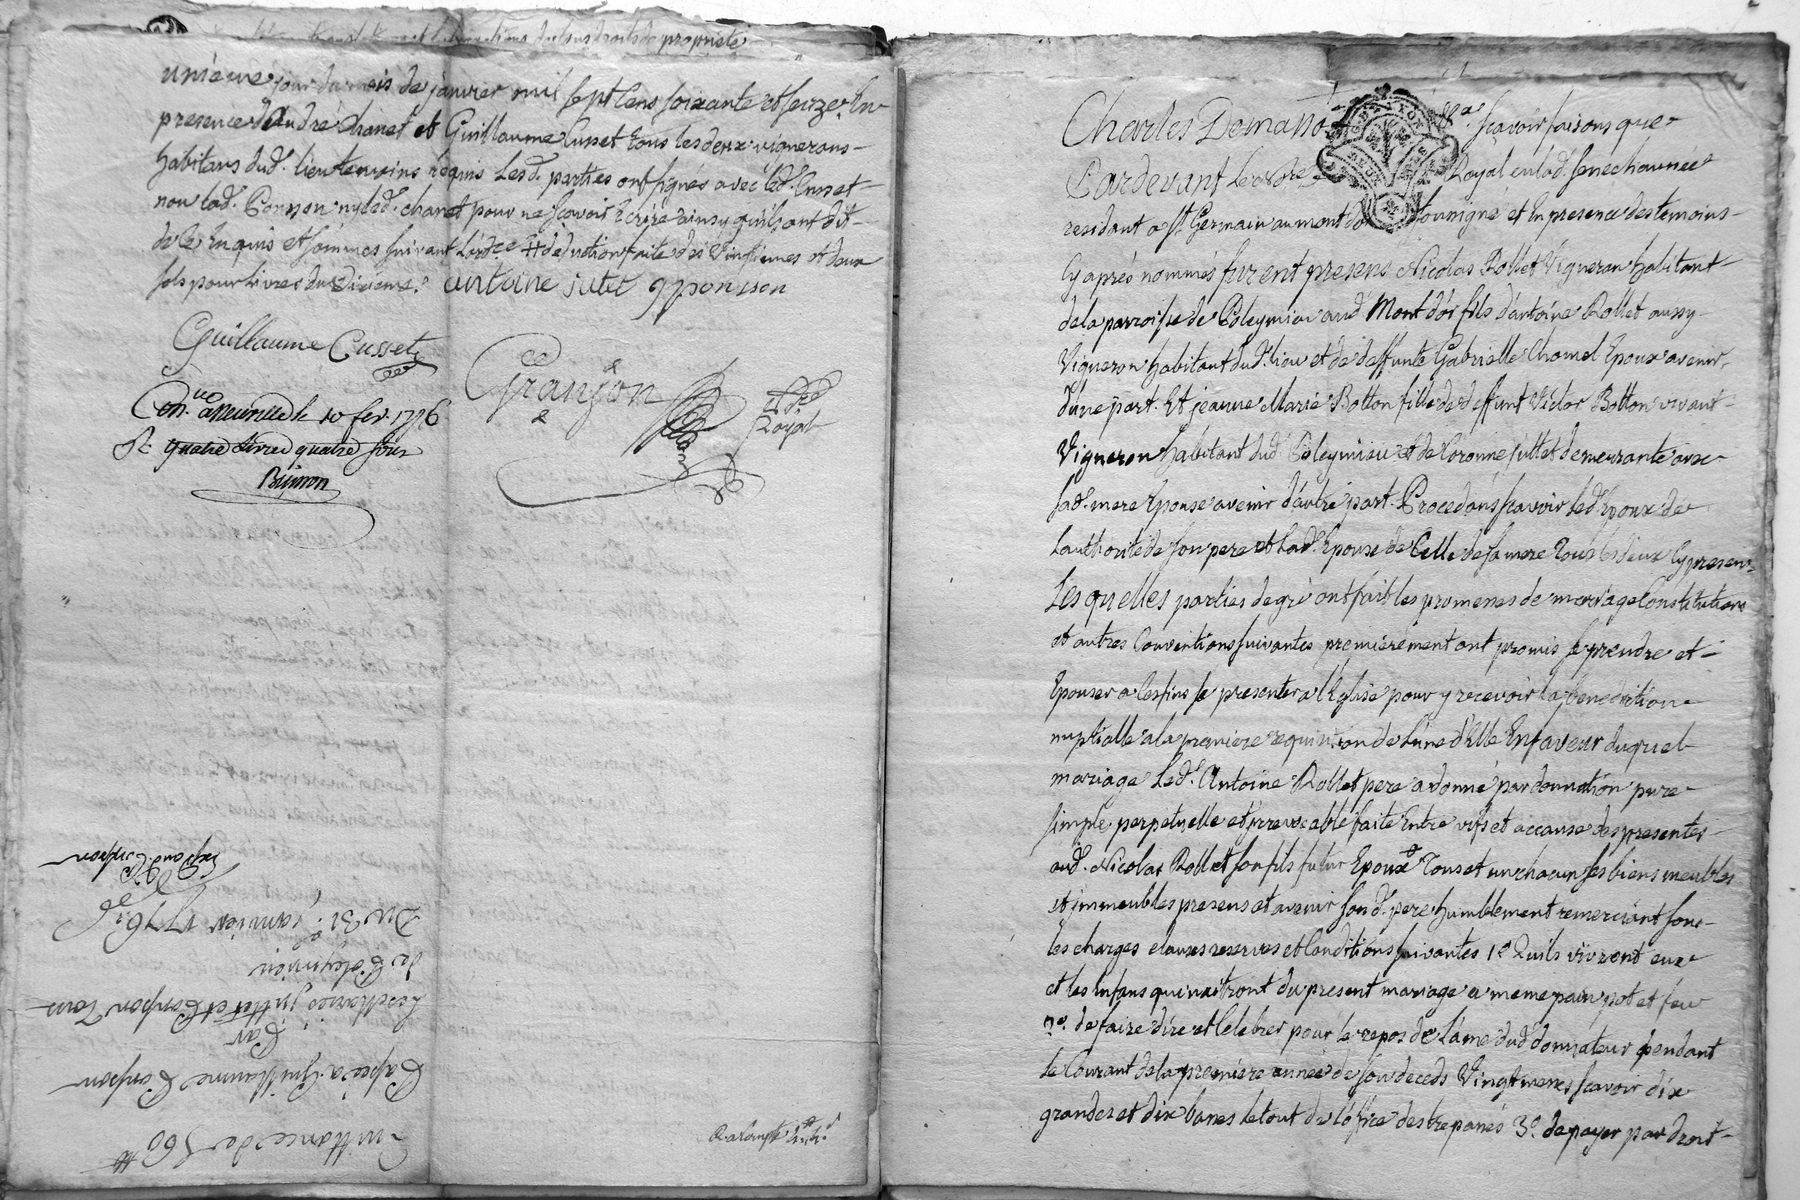 unieme jour du mois de janvier mil sept cens soixante et seize En
presence d'André Chanet et Guillaume Cusset tous les deux vignerons
habitans dud. lieu temoins requis Lesd. parties ont signes avec led. Cusset
non lad. Ponson ny led. chanet pour ne scavoir Ecrire ainsy quils ont dit
de ce Enquis et sommes suivant L'ordce # deduction faite des vingtiemes et deux
sols pour Livres du Dixieme. antoine jutet g ponsson
Guillaume Cusset
Granjon
Royal
le 10 fev. 1776
R: quatre Livres quatre sous
Quittance de 360 ₶
Passée a Guillaume Ponson
Par
Les Maries juttet et Ponson Tous
de Poleymieu
Du 31e. janvier 1776
Charles Demasso scavoir faisons que
Pardevant Le Nore Royal en lad. senechaussée
residant a St. Germain au mont d'or soussigné et En presence des temoins
Cy aprés nommés furent presens Nicolas Rollet Vigneron habitant
de la parroisse de Poleymieu aud. Mont d'or fils d'antoine Rollet aussy
Vigneron habitant dud. lieu et de deffunte Gabrielle Chomel Epoux avenir
d'une part. Et jeanne Marie Botton fille de deffunt Victor Botton vivant
Vigneron habitant dud. Poleymieu et de juttet demeurante avec
sad. mere Epouse avenir d'autre part. Procedans scavoir led. Epoux de
Lauthorité de son pere et Lad. Epouse de Celle de sa mere Tous les deux Cy presens
Les quelles parties de gré ont fait les promesses de mariage Constitutions
et autres Conventions suivantes premierement ont promis se prendre et
Epouser a Ces fins se presenter a l'Eglise pour y recevoir la benediction
nuptialle a la premiere requisition de L'une d'Elle En faveur duquel
mariage Led. Antoine Rollet pere a donné par donnation pure
simple perpetuelle et jrrevocable faite Entre vifs et a cause des presentes
aud. Nicolas Rollet son fils futur Epoux Tous et un chacun ses biens meubles
et jmmeubles presens et avenir sond. pere humblement remerciant sous
les charges clauses reserves et Conditions suivantes 1º Quils vivront eux
et les Enfans qui naitront du present mariage a meme pain pot et feu
2º. de faire dire et Celebrer pour le repos de L'ame dud. donnateur pendant
le Courant de la premiere année de son deceds Vingt messes scavoir dix
grandes et dix basses le tout de l'office des trepassés 3º. de payer par droit